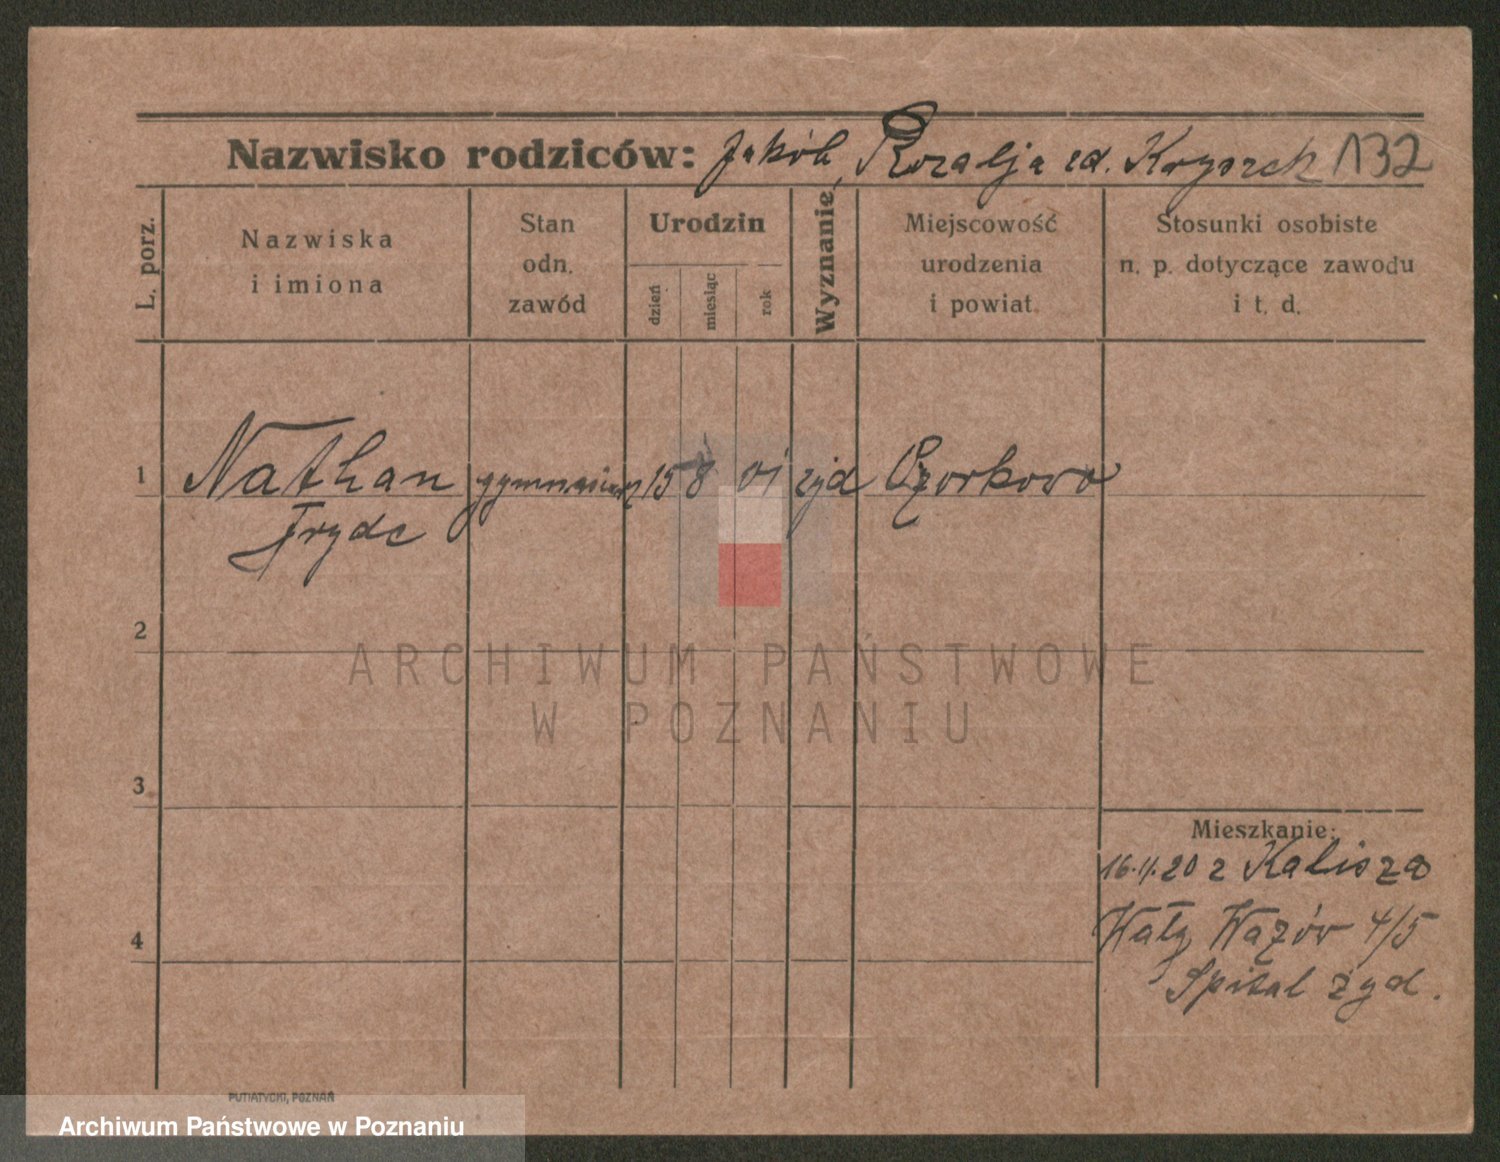 Nazwisko rodziców: Jakób, Rozalja zd. Kryszek 132
L. porz.
Nazwiska i imiona
Stan odn. zawód
Urodzin
dzień
miesiąc
rok
Wyznanie
Miejscowość urodzenia i powiat.
Stosunki osobiste n. p. dotyczące zawodu i t. d.
1 Nathan 15 8 01 żyd Ozorkowo
Fryde
2
3
4
Mieszkanie:
16.11.20 z Kalisza
Wały Wazów 4/5
Spital żyd.
PUTIATYCKI, POZNAŃ
ARCHIWUM PAŃSTWOWE
W POZNANIU
Archiwum Państwowe w Poznaniu